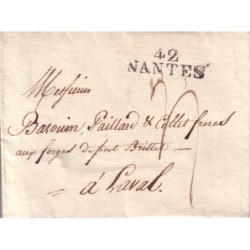 42
NANTES
Messieurs
Barouin, Paillard & Collet freres
aux forges de port Brillet
à Laval.